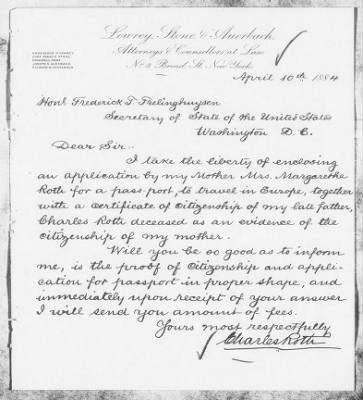 Lowrey, Stone & Auerbach,
Attorneys & Counsellors at Law
No 3 Broad St. New York.
April 10th 1884
Honl Frederick T. Frelinghuysen
Secretary of State of the United States
Washington D. C.
Dear Sir:-
I take the liberty of enclosing
an application by my Mother Mrs. Margarethe
Roth for a passport, to travel in Europe, together
with a certificate of citizenship of my late father,
Charles Roth deceased as an evidence of the
citizenship of my mother.
Will you be so good as to inform
me, is the proof of citizenship and appli-
cation for passport in proper shape, and
immediately upon receipt of your answer
I will send you amount of fees.
Yours most respectfully
Charles Roth